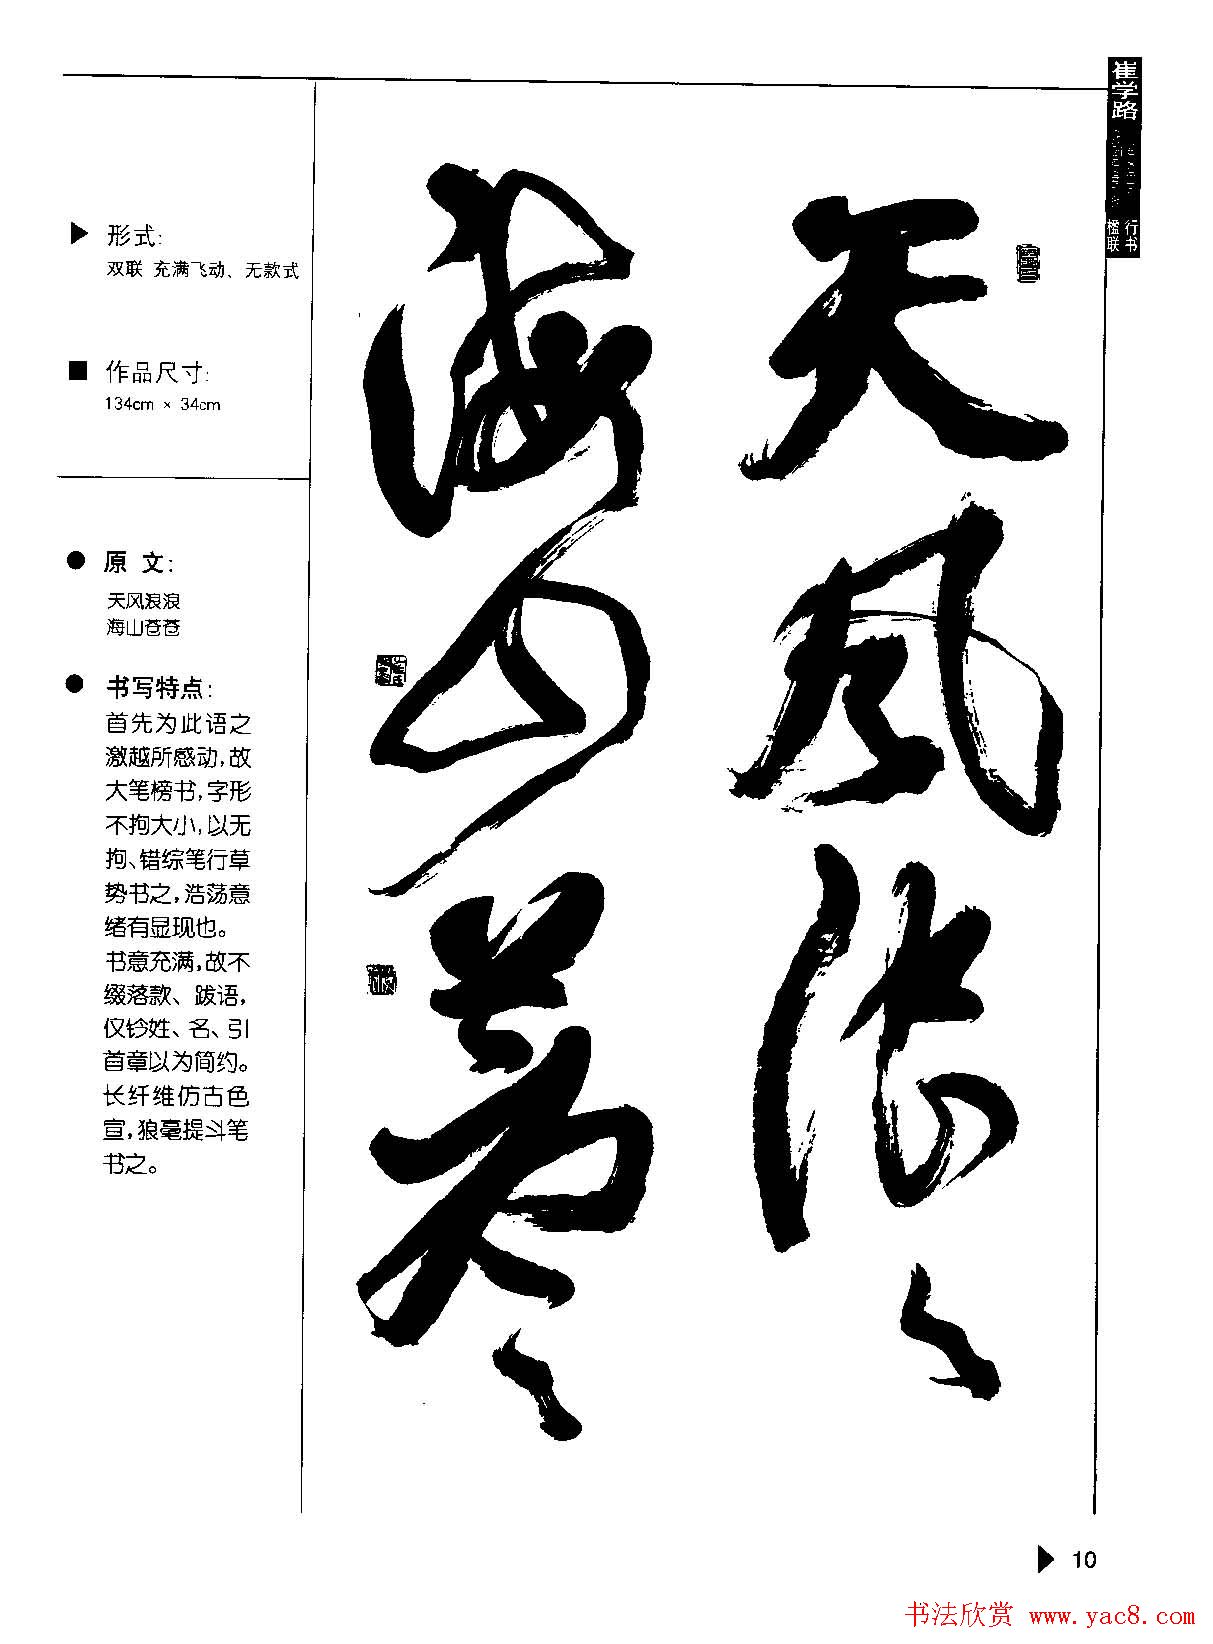 崔学路
行书
楹联
▶ 形式:
双联 充满飞动、无款式
■ 作品尺寸:
134cm × 34cm
● 原 文:
天风浪浪
海山苍苍
● 书写特点:
首先为此语之
激越所感动,故
大笔榜书,字形
不拘大小,以无
拘、错综笔行草
势书之,浩荡意
绪有显现也。
书意充满,故不
缀落款、跋语,
仅钤姓、名、引
首章以为简约。
长纤维仿古色
宣,狼毫提斗笔
书之。
天风浪〻
海山苍〻
▶ 10
书法欣赏 www.yac8.com